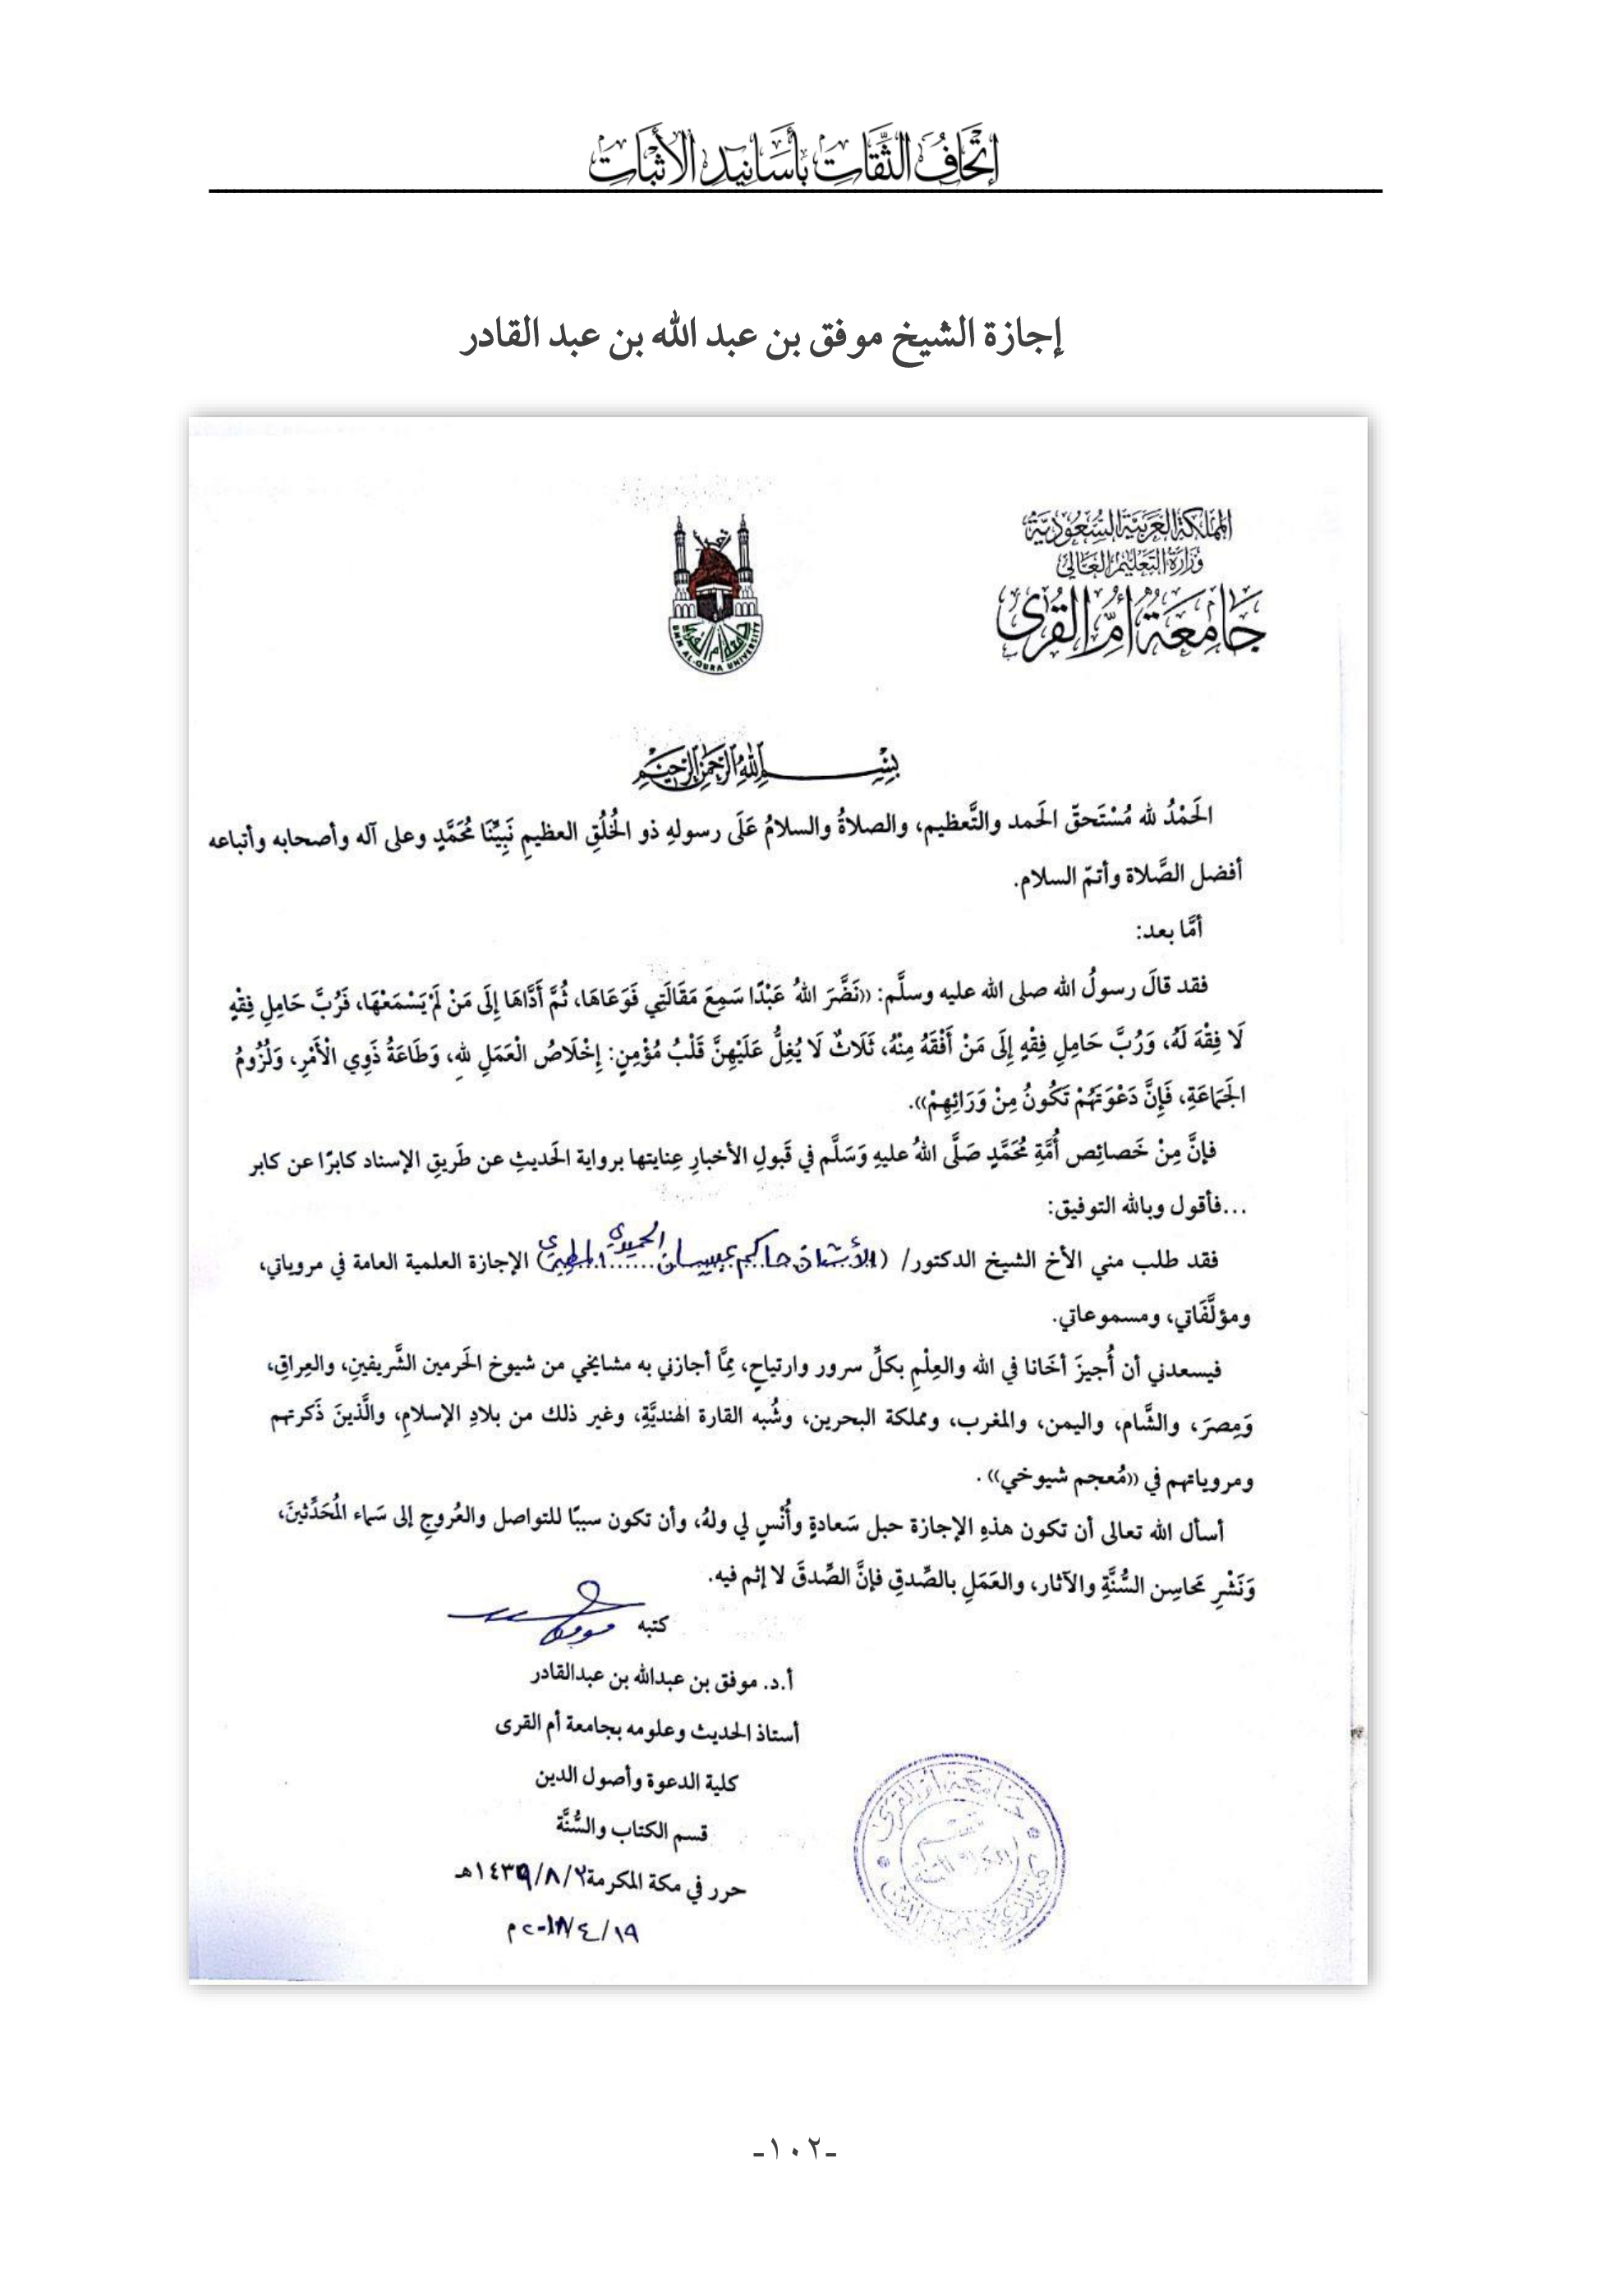 إتحافُ الثِّقاتِ بأسانيدِ الأثباتِ
إجازة الشيخ موفق بن عبد الله بن عبد القادر
المملكة العربية السعودية
وزارة التعليم العالي
جامعة أم القرى
جامعة أم القرى
UMM AL-QURA UNIVERSITY
بسم الله الرحمن الرحيم
الحَمْدُ لله مُسْتَحقّ الحَمد والتَّعظيم، والصلاةُ والسلامُ عَلَى رسولهِ ذو الخُلُقِ العظيمِ نَبِيِّنَا مُحَمَّدٍ وعلى آله وأصحابه وأتباعه
أفضل الصَّلاة وأتمّ السلام.
أمَّا بعد:
فقد قالَ رسولُ الله صلى الله عليه وسلَّم: ((نَضَّرَ اللهُ عَبْدًا سَمِعَ مَقَالَتِي فَوَعَاهَا، ثُمَّ أَدَّاهَا إِلَى مَنْ لَمْ يَسْمَعْهَا، فَرُبَّ حَامِلِ فِقْهٍ
لَا فِقْهَ لَهُ، وَرُبَّ حَامِلِ فِقْهٍ إِلَى مَنْ أَفْقَهُ مِنْهُ، ثَلَاثٌ لَا يُغِلُّ عَلَيْهِنَّ قَلْبُ مُؤْمِنٍ: إِخْلَاصُ الْعَمَلِ للهِ، وَطَاعَةُ ذَوِي الْأَمْرِ، وَلُزُومُ
الجَمَاعَةِ، فَإِنَّ دَعْوَتَهُمْ تَكُونُ مِنْ وَرَائِهِمْ)).
فإنَّ مِنْ خَصائِص أُمَّةِ مُحَمَّدٍ صَلَّى اللهُ عليهِ وَسَلَّم في قَبولِ الأخبارِ عِنايتها برواية الحَديثِ عن طَريقِ الإسناد كابرًا عن كابر
...فأقول وبالله التوفيق:
فقد طلب مني الأخ الشيخ الدكتور/ (الأستاذ حاكم عبيسان الحميدي المطيري) الإجازة العلمية العامة في مروياتي،
ومؤلَّفَاتي، ومسموعاتي.
فيسعدني أن أُجيزَ أخَانا في الله والعِلْمِ بكلِّ سرور وارتياحٍ، مِمَّا أجازني به مشايخي من شيوخ الحَرمين الشَّريفينِ، والعِراقِ،
وَمِصرَ، والشَّام، واليمن، والمغرب، ومملكة البحرين، وشُبه القارة الهنديَّةِ، وغير ذلك من بلادِ الإسلامِ، والَّذينَ ذَكرتهم
ومروياتهم في ((مُعجم شيوخي)).
أسأل الله تعالى أن تكون هذهِ الإجازة حبل سَعادةٍ وأُنْسٍ لي ولهُ، وأن تكون سببًا للتواصل والعُروجِ إلى سَماء المُحَدِّثينَ،
وَنَشْرِ مَحاسِن السُّنَّةِ والآثار، والعَمَلِ بالصِّدقِ فإنَّ الصِّدقَ لا إثم فيه.
كتبه
أ.د. موفق بن عبدالله بن عبدالقادر
أستاذ الحديث وعلومه بجامعة أم القرى
كلية الدعوة وأصول الدين
قسم الكتاب والسُّنَّة
حرر في مكة المكرمة ٢/٨/١٤٣٩هـ
١٩/٤/٢٠١٨م
جامعة أم القرى
-١٠٢-